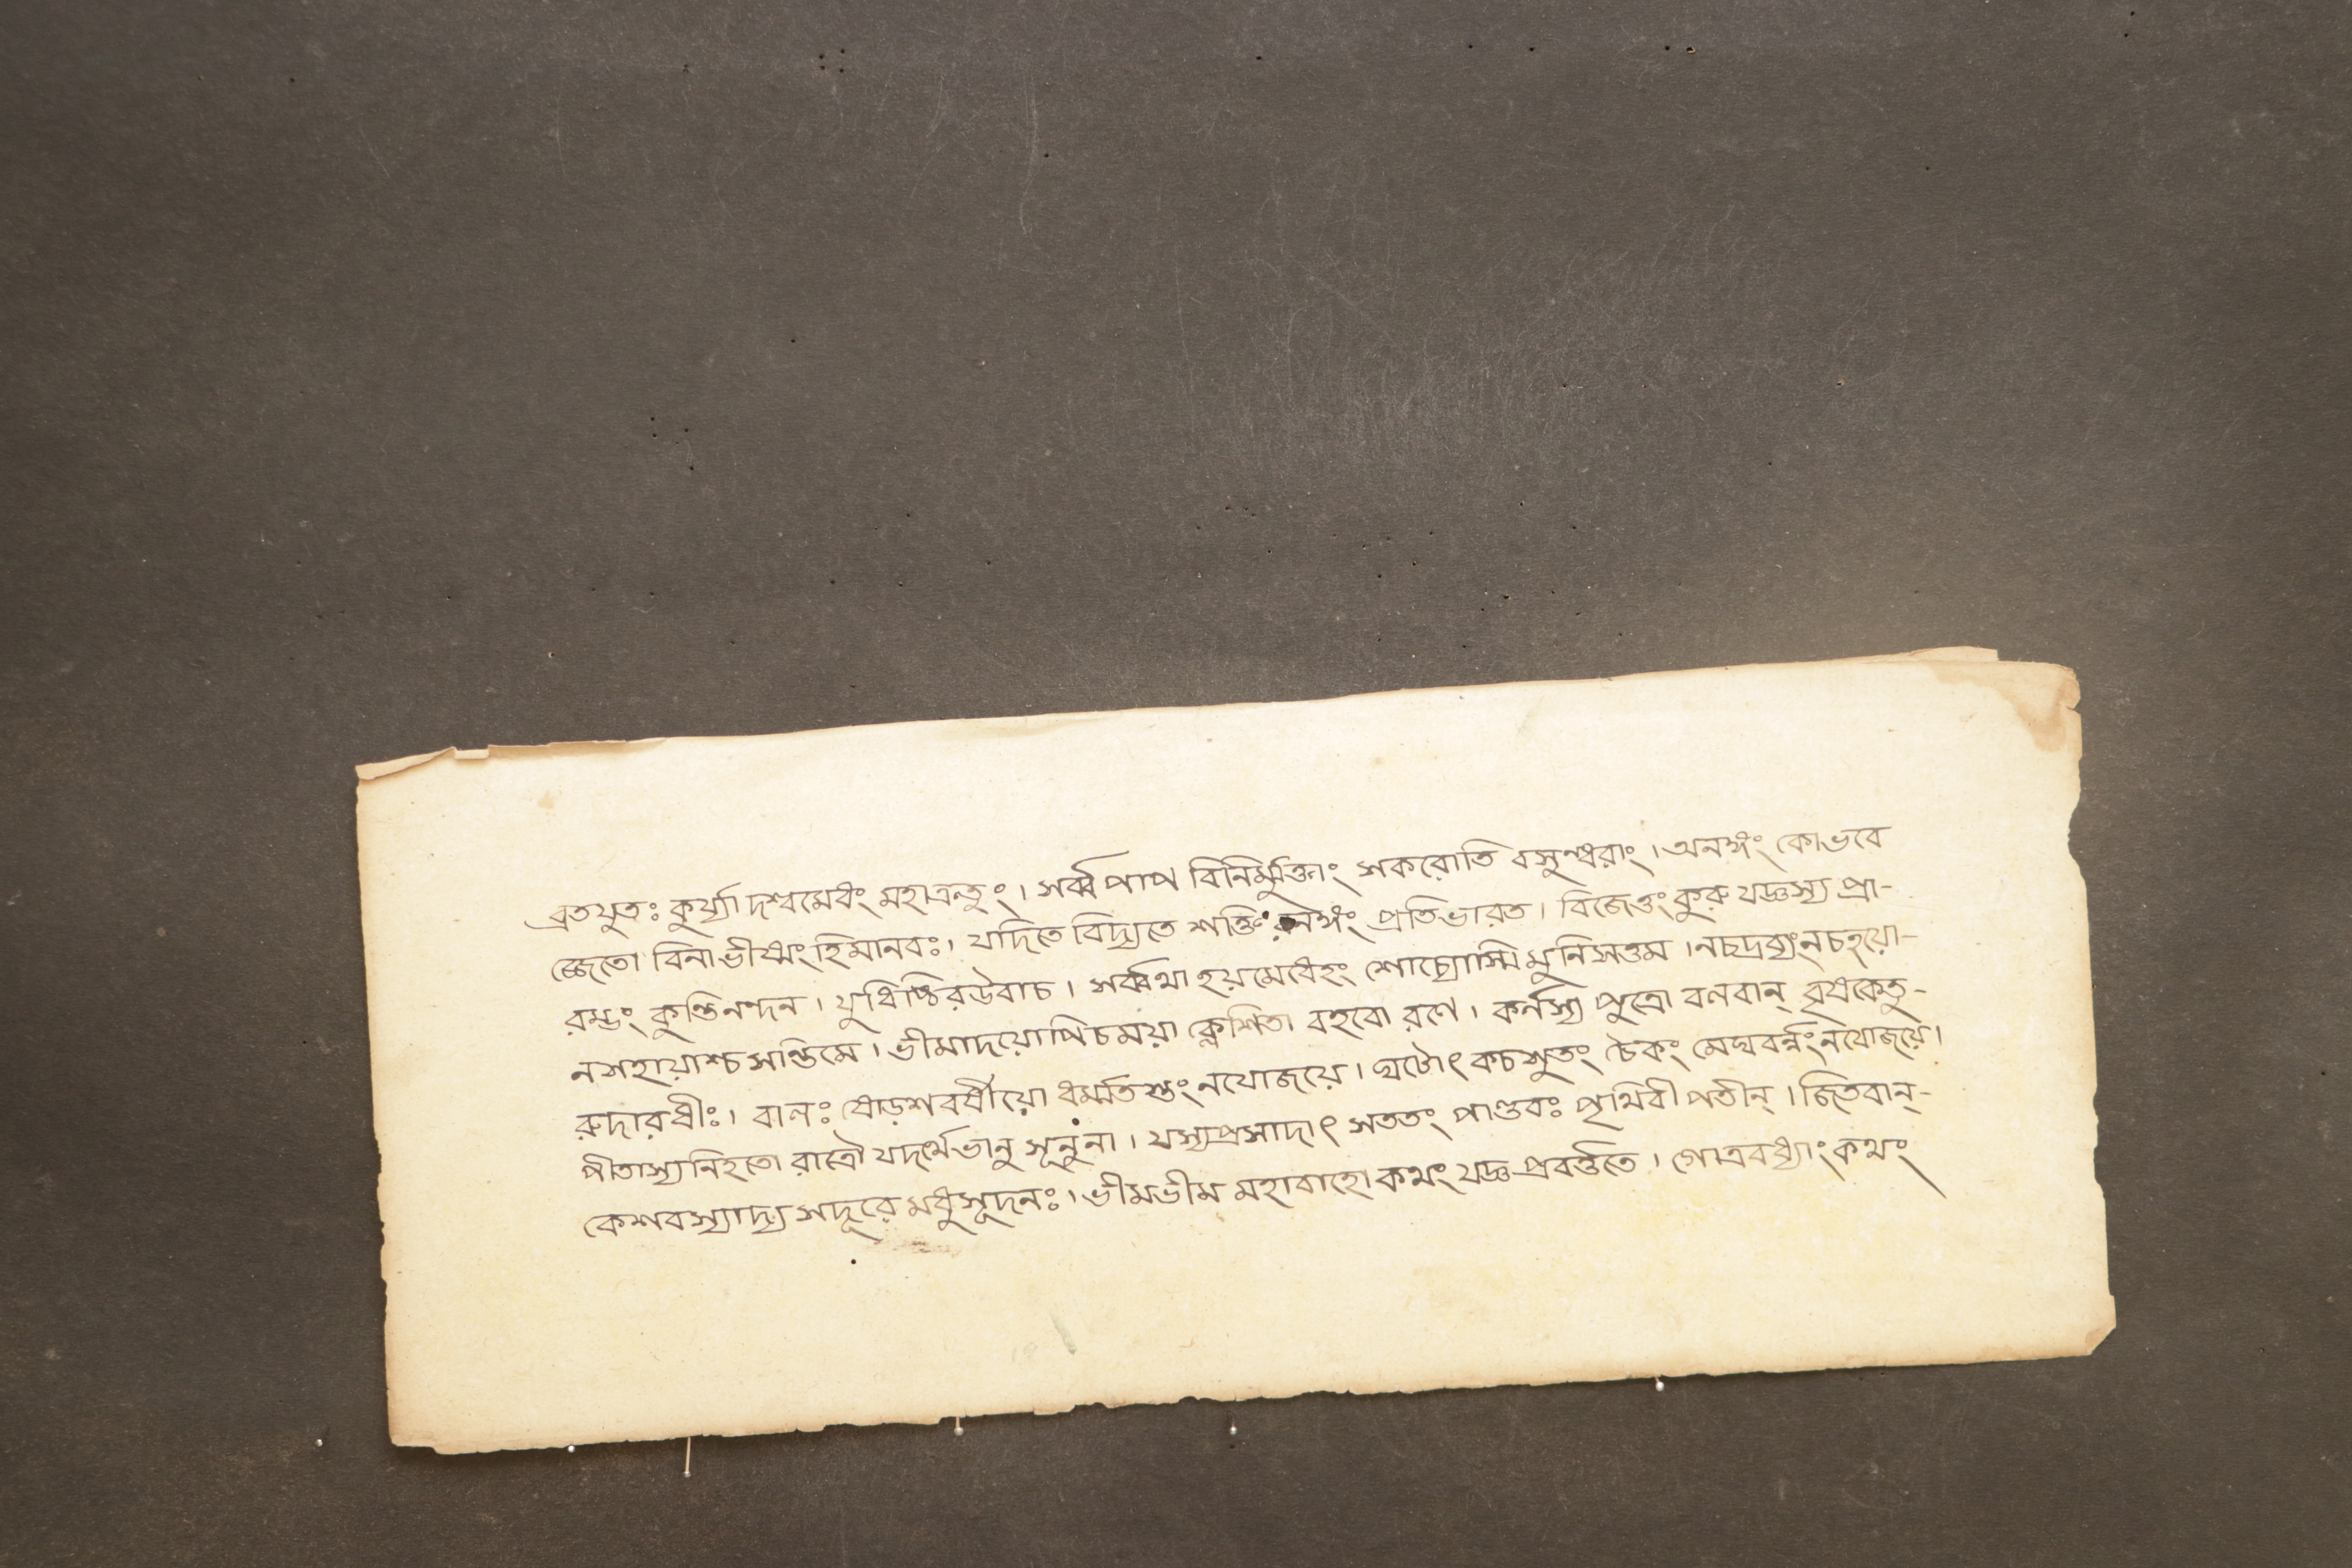 ব্রতযুতঃ কুর্য্যা দশ্বমেধং মহাত্রন্তুং । সর্ব্ব পাপ বিনির্ম্মুক্তাং শকরোতি বসুন্ধরাং । অনঙ্গং কোভবে
জ্জেতো বিনা ভীষ্মং হি মানবঃ । যদিতে বিদ্যতে শক্তি রনঙ্গং প্রতিভারত । বিজেতুং কুরু যজ্ঞস্য প্রা-
রম্ভং কুন্তিনন্দন । যুধিষ্ঠির উবাচ । সর্ব্বথা হয়মেধেহং শোচ্যোস্মি মুনিসত্তম । নচদ্রব্যং নচহয়ো-
নশহায়াশ্চ সন্তিমে । ভীমাদয়োপিচময়া ক্লেশিতা বহবো রণে । কর্নস্য পুত্রো বলবান্ বৃষকেতু-
রুদারধীঃ । বালঃ ষোড়শবর্ষীয়ো ধর্ম্মতিস্তং নযোজয়ে । ঘটোৎকচশুতং চৈকং মেঘবর্ন্নং নযোজয়ে ।
পীতাস্য নিহতো রাত্রৌ যদর্থে ভানু সূনুনা । যস্যপ্রসাদাৎ সততং পাণ্ডবঃ পৃথিবী পতীন্ । জিতবান্-
কেশবস্যাদ্য সদূরে মধুসূদনঃ । ভীমভীম মহাবাহো কথং যজ্ঞ প্রবর্ত্ততে । গোত্রবধ্যাং কথং